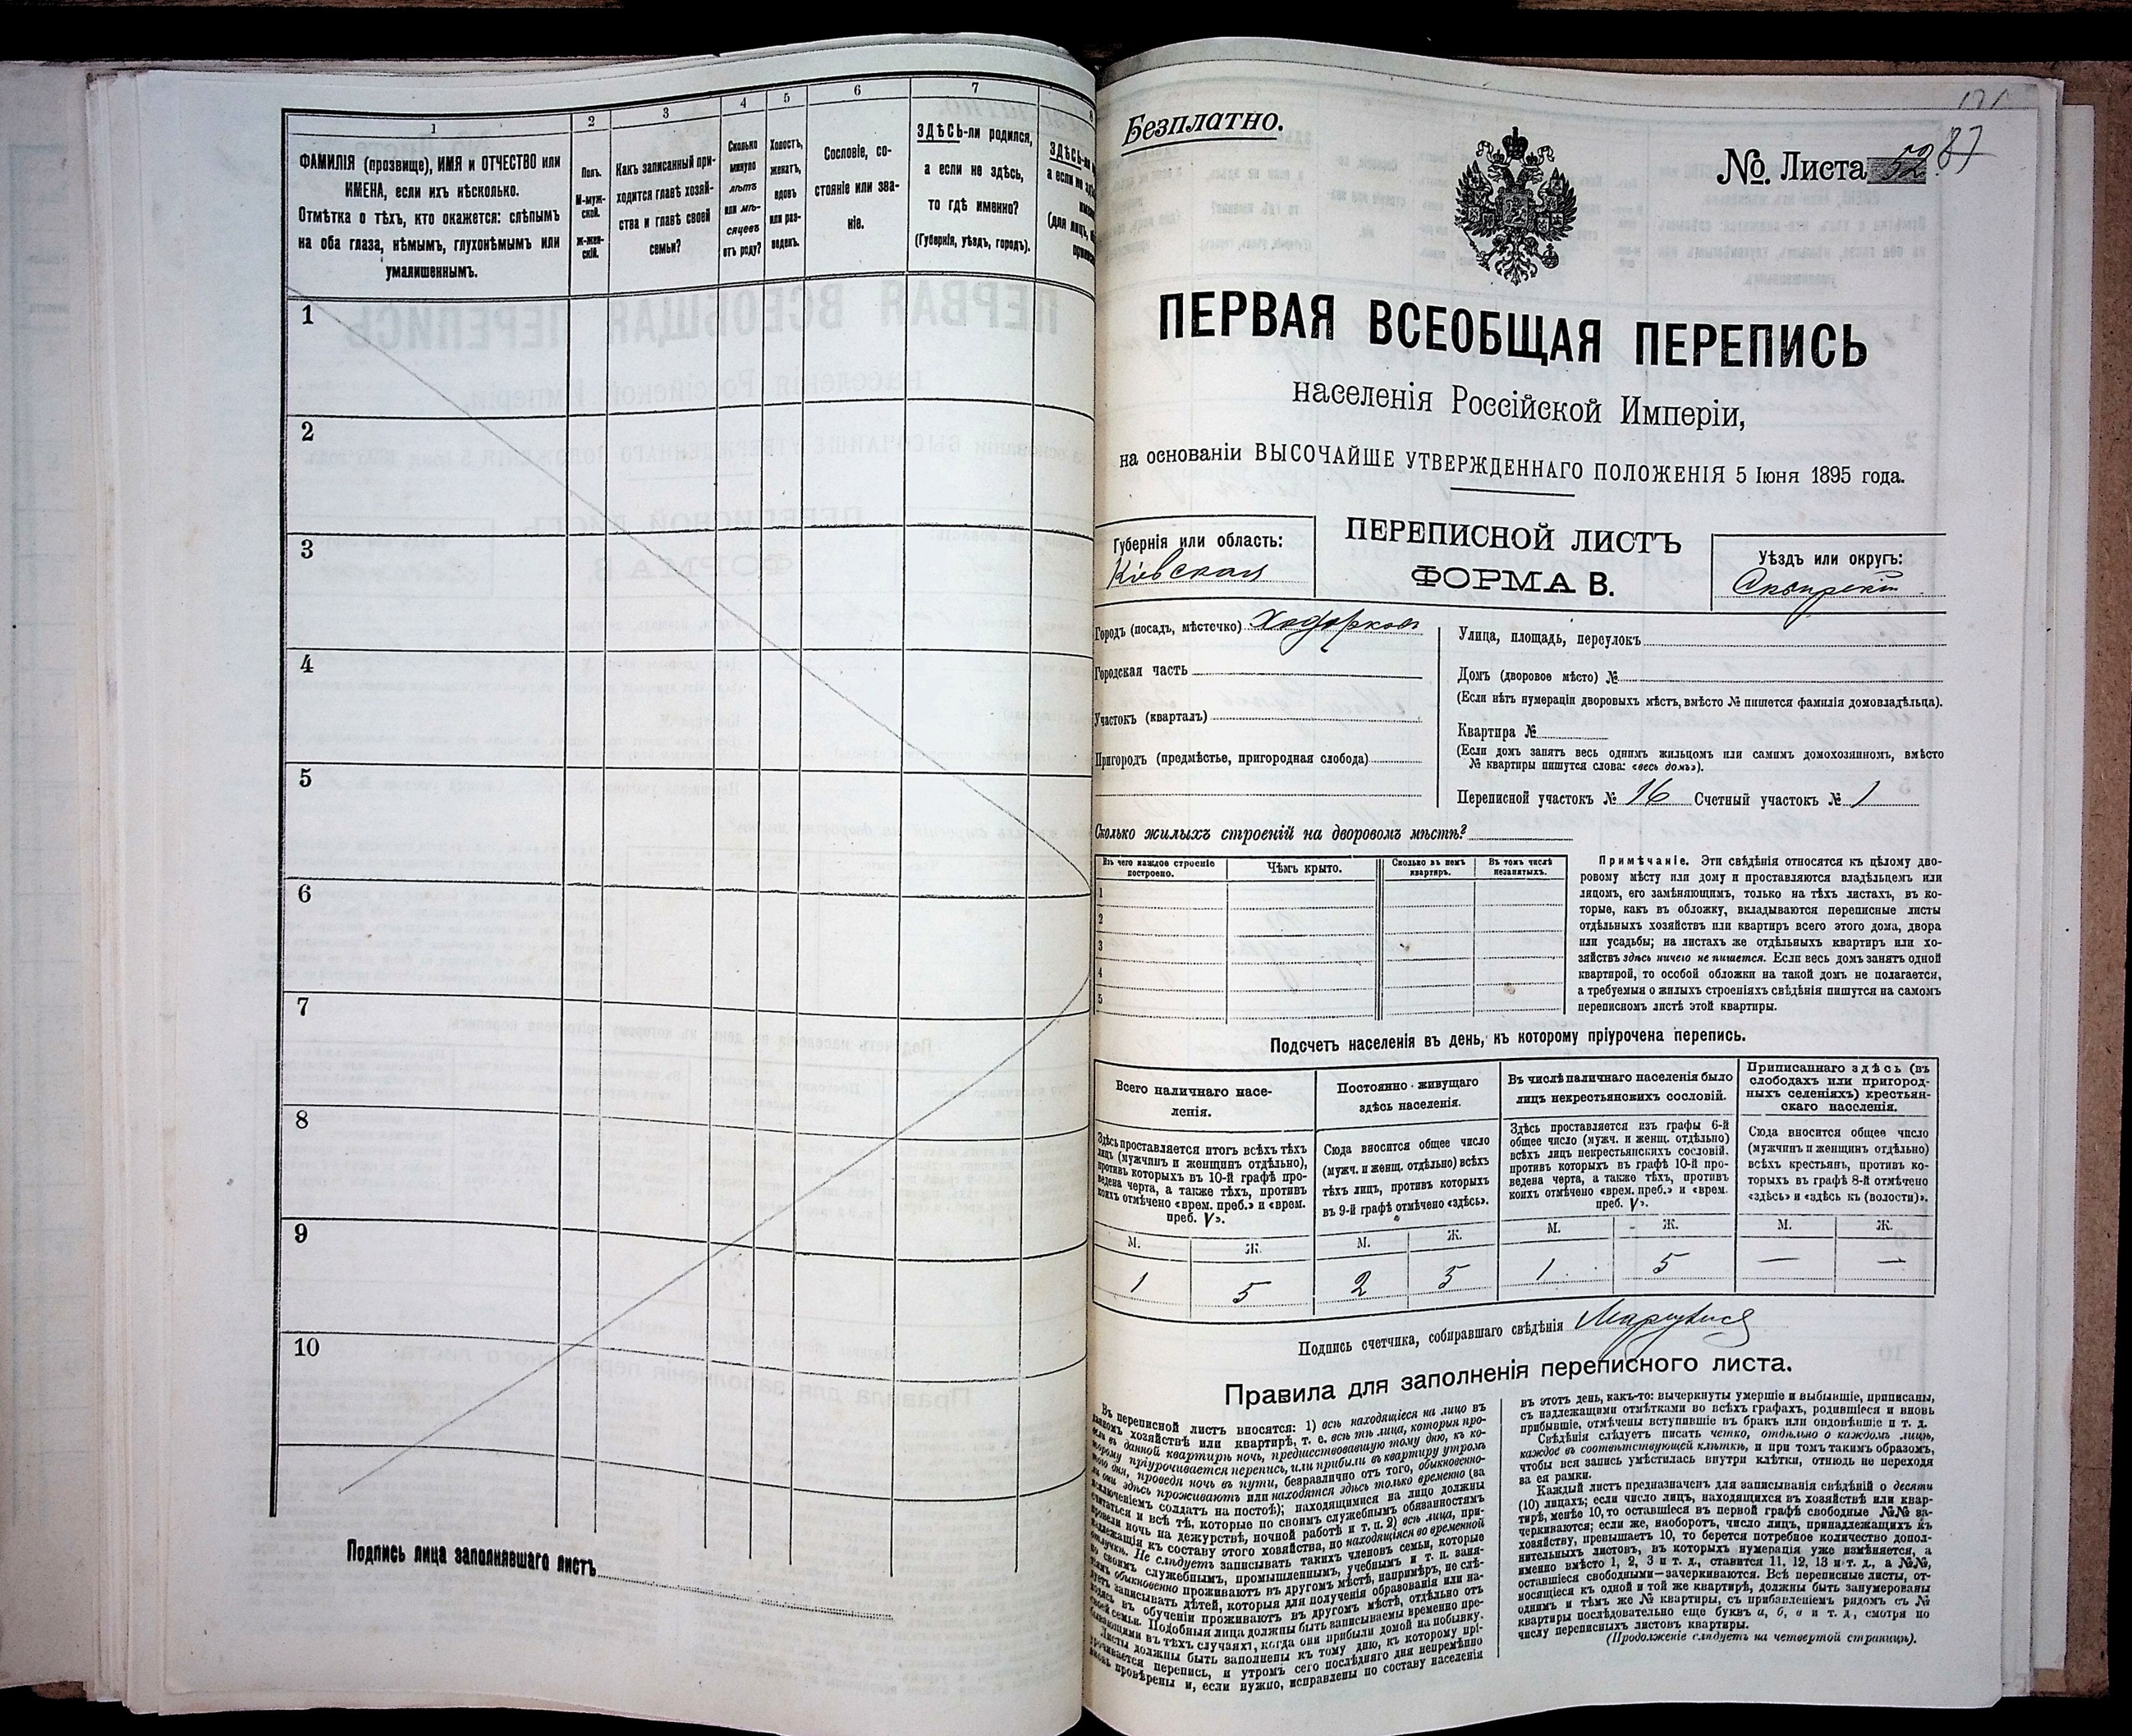 1
ФАМИЛІЯ (прозвище), ИМЯ и ОТЧЕСТВО или
ИМЕНА, если ихъ нѣсколько.
Отмѣтка о тѣхъ, кто окажется: слѣпымъ
на оба глаза, нѣмымъ, глухонѣмымъ или
умалишеннымъ.
2
Полъ.
М-муж-
ской.
ж-жен-
скій.
3
Какъ записанный при-
ходится главѣ хозяй-
ства и главѣ своей
семьи?
4
Сколько
минуло
лѣтъ
или мѣ-
сяцевъ
отъ роду?
5
Холостъ,
женатъ,
вдовъ
или раз-
веденъ.
6
Сословіе, со-
стояніе или зва-
ніе.
7
ЗДѢСЬ-ли родился,
а если не здѣсь,
то гдѣ именно?
(Губернія, уѣздъ, городъ).
8
1
2
3
4
5
6
7
8
9
10
Подпись лица заполнявшаго листъ
Безплатно.
№. Листа 52. 87
ПЕРВАЯ ВСЕОБЩАЯ ПЕРЕПИСЬ
населенія Россійской Имперіи,
на основаніи ВЫСОЧАЙШЕ УТВЕРЖДЕННАГО ПОЛОЖЕНІЯ 5 Іюня 1895 года.
Губернія или область:
Кіевская
ПЕРЕПИСНОЙ ЛИСТЪ
ФОРМА В.
Уѣздъ или округъ:
Сквирскій
Городъ (посадъ, мѣстечко) Ходорковъ
Городская часть
Участокъ (кварталъ)
Пригородъ (предмѣстье, пригородная слобода)
Улица, площадь, переулокъ
Домъ (дворовое мѣсто) №
(Если нѣтъ нумераціи дворовыхъ мѣстъ, вмѣсто № пишется фамилія домовладѣльца).
Квартира №
(Если домъ занятъ весь однимъ жильцомъ или самимъ домохозяиномъ, вмѣсто
№ квартиры пишутся слова: «весь домъ»).
Переписной участокъ № 16 Счетный участокъ № 1
Сколько жилыхъ строеній на дворовомъ мѣстѣ?
Изъ чего каждое строеніе
построено.
Чѣмъ крыто.
Сколько въ немъ
квартиръ.
Въ томъ числѣ
незанятыхъ.
1
2
3
4
5
Примѣчаніе. Эти свѣдѣнія относятся къ цѣлому дво-
ровому мѣсту или дому и проставляются владѣльцемъ или
лицомъ, его замѣняющимъ, только на тѣхъ листахъ, въ ко-
торые, какъ въ обложку, вкладываются переписные листы
отдѣльныхъ хозяйствъ или квартиръ всего этого дома, двора
или усадьбы; на листахъ же отдѣльныхъ квартиръ или хо-
зяйствъ здѣсь ничего не пишется. Если весь домъ занятъ одной
квартирой, то особой обложки на такой домъ не полагается,
а требуемыя о жилыхъ строеніяхъ свѣдѣнія пишутся на самомъ
переписномъ листѣ этой квартиры.
Подсчетъ населенія въ день, къ которому пріурочена перепись.
Всего наличнаго насе-
ленія.
Здѣсь проставляется итогъ всѣхъ тѣхъ
лицъ (мужчинъ и женщинъ отдѣльно),
противъ которыхъ въ 10-й графѣ про-
ведена черта, а также тѣхъ, противъ
коихъ отмѣчено «врем. преб.» и «врем.
преб. V».
Постоянно живущаго
здѣсь населенія.
Сюда вносится общее число
(мужч. и женщ. отдѣльно) всѣхъ
тѣхъ лицъ, противъ которыхъ
въ 9-й графѣ отмѣчено «здѣсь».
Въ числѣ наличнаго населенія было
лицъ некрестьянскихъ сословій.
Здѣсь проставляется изъ графы 6-й
общее число (мужч. и женщ. отдѣльно)
всѣхъ лицъ некрестьянскихъ сословій.
противъ которыхъ въ графѣ 10-й про-
ведена черта, а также тѣхъ, противъ
коихъ отмѣчено «врем. преб.» и «врем.
преб. V».
Приписаннаго здѣсь (въ
слободахъ или пригород-
ныхъ селеніяхъ) крестьян-
скаго населенія.
Сюда вносится общее число
(мужчинъ и женщинъ отдѣльно)
всѣхъ крестьянъ, противъ ко-
торыхъ въ графѣ 8-й отмѣчено
«здѣсь» и «здѣсь къ (волости)».
М. Ж. М. Ж. М. Ж. М. Ж.
1 5 2 5 1 5 — —
Подпись счетчика, собиравшаго свѣдѣнія
Правила для заполненія переписного листа.
Въ переписной листъ вносятся: 1) всѣ находящіеся на лицо въ
данномъ хозяйствѣ или квартирѣ, т. е. всѣ тѣ лица, которыя про-
вели въ данной квартирѣ ночь, предшествовавшую тому дню, къ ко-
торому пріурочивается перепись, или прибыли въ квартиру утромъ
того дня, проведя ночь въ пути, безразлично отъ того, обыкновенно-
ли они здѣсь проживаютъ или находятся здѣсь только временно (за
исключеніемъ солдатъ на постоѣ); находящимися на лицо должны
считаться и всѣ тѣ, которые по своимъ служебнымъ обязанностямъ
провели ночь на дежурствѣ, ночной работѣ и т. п. 2) всѣ лица, при-
надлежащія къ составу этого хозяйства, но находящіяся во временной
отлучкѣ. Не слѣдуетъ записывать такихъ членовъ семьи, которые
по своимъ служебнымъ, промышленнымъ, учебнымъ и т. п. заня-
тіямъ обыкновенно проживаютъ въ другомъ мѣстѣ, напримѣръ, не слѣ-
дуетъ записывать дѣтей, которыя для полученія образованія или на-
ходясь въ обученіи проживаютъ въ другомъ мѣстѣ, отдѣльно отъ
своей семьи. Подобныя лица должны быть записываемы временно пре-
бывающими въ тѣхъ случаяхъ, когда они прибыли домой на побывку.
Листы должны быть заполнены къ тому дню, къ которому прі-
урочивается перепись, и утромъ сего послѣдняго дня непремѣнно
вновь провѣрены и, если нужно, исправлены по составу населенія
въ этотъ день, какъ-то: вычеркнуты умершіе и выбывшіе, приписаны,
съ надлежащими отмѣтками во всѣхъ графахъ, родившіеся и вновь
прибывшіе, отмѣчены вступившіе въ бракъ или овдовѣвшіе и т. д.
Свѣдѣнія слѣдуетъ писать четко, отдѣльно о каждомъ лицѣ,
каждое въ соотвѣтствующей клѣткѣ, и при томъ такимъ образомъ,
чтобы вся запись умѣстилась внутри клѣтки, отнюдь не переходя
за ея рамки.
Каждый листъ предназначенъ для записыванія свѣдѣній о десяти
(10) лицахъ; если число лицъ, находящихся въ хозяйствѣ или квар-
тирѣ, менѣе 10, то оставшіеся въ первой графѣ свободные №№ за-
черкиваются; если же, наоборотъ, число лицъ, принадлежащихъ къ
хозяйству, превышаетъ 10, то берется потребное количество допол-
нительныхъ листовъ, въ которыхъ нумерація уже измѣняется, а
именно вмѣсто 1, 2, 3 и т. д., ставится 11, 12, 13 и т. д., а №№,
оставшіеся свободными—зачеркиваются. Всѣ переписные листы, от-
носящіеся къ одной и той же квартирѣ, должны быть занумерованы
однимъ и тѣмъ же № квартиры, съ прибавленіемъ рядомъ съ №
квартиры послѣдовательно еще буквъ а, б, в и т. д., смотря по
числу переписныхъ листовъ квартиры.
(Продолженіе слѣдуетъ на четвертой страницѣ).